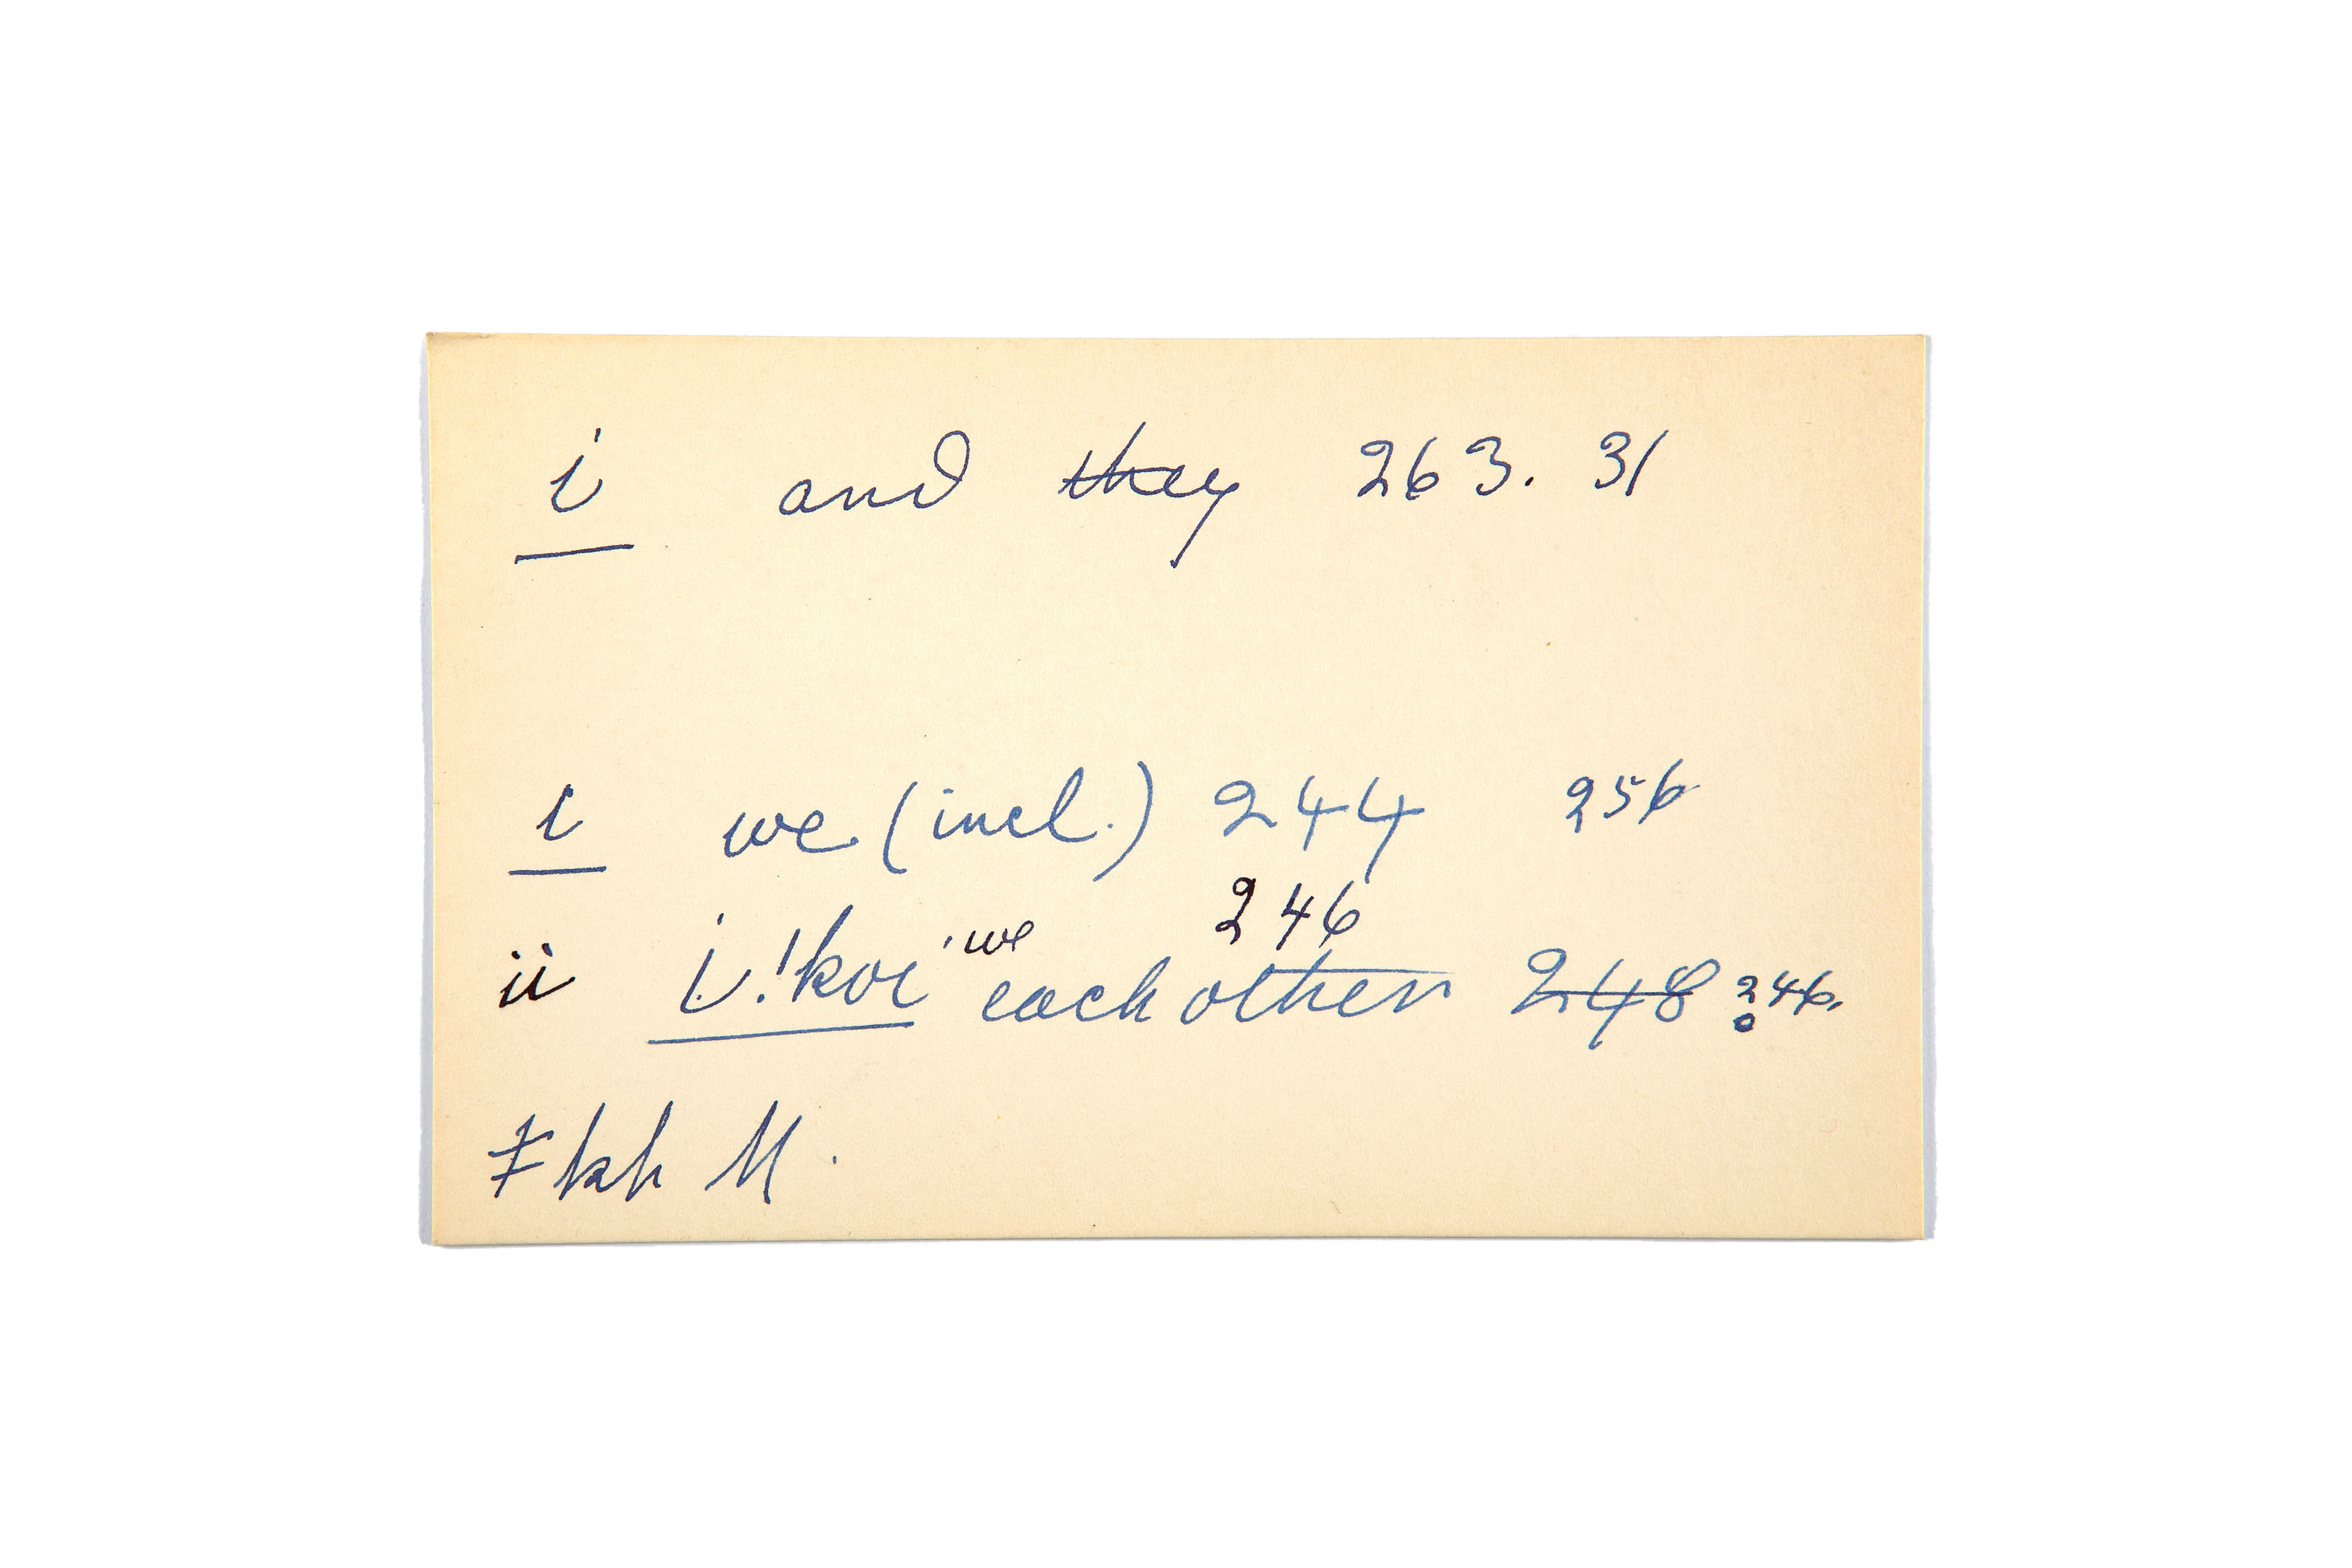 i and they 263. 31
i we (incl.) 244 256
246
ii i !koe 'we each other 248 ? 246.
ǂkh M.